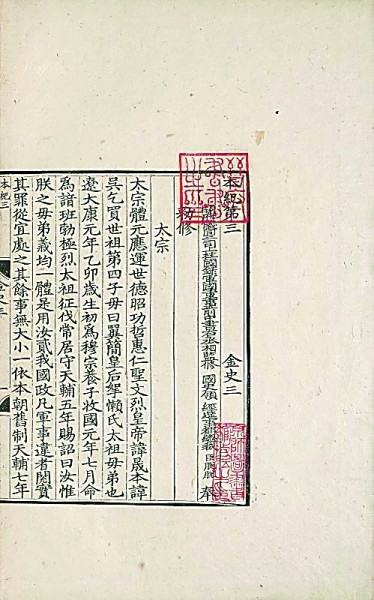 本紀第三 金史三
司上柱國錄軍國重事前中書右丞相監修 國史領 經筵事都總裁臣脫脫 奉
敕修
太宗
太宗體元應運世德昭功哲惠仁聖文烈皇帝諱晟本諱
吳乞買世祖第四子母曰翼簡皇后拏懶氏太祖母弟也
遼大康元年乙卯歲生初爲穆宗養子收國元年七月命
爲諳班勃極烈太祖征伐常居守天輔五年賜詔曰汝惟
朕之母弟義均一體是用汝貳我國政凡軍事違者閱實
其罪從宜處之其餘事無大小一依本朝舊制天輔七年
本紀三
金史三